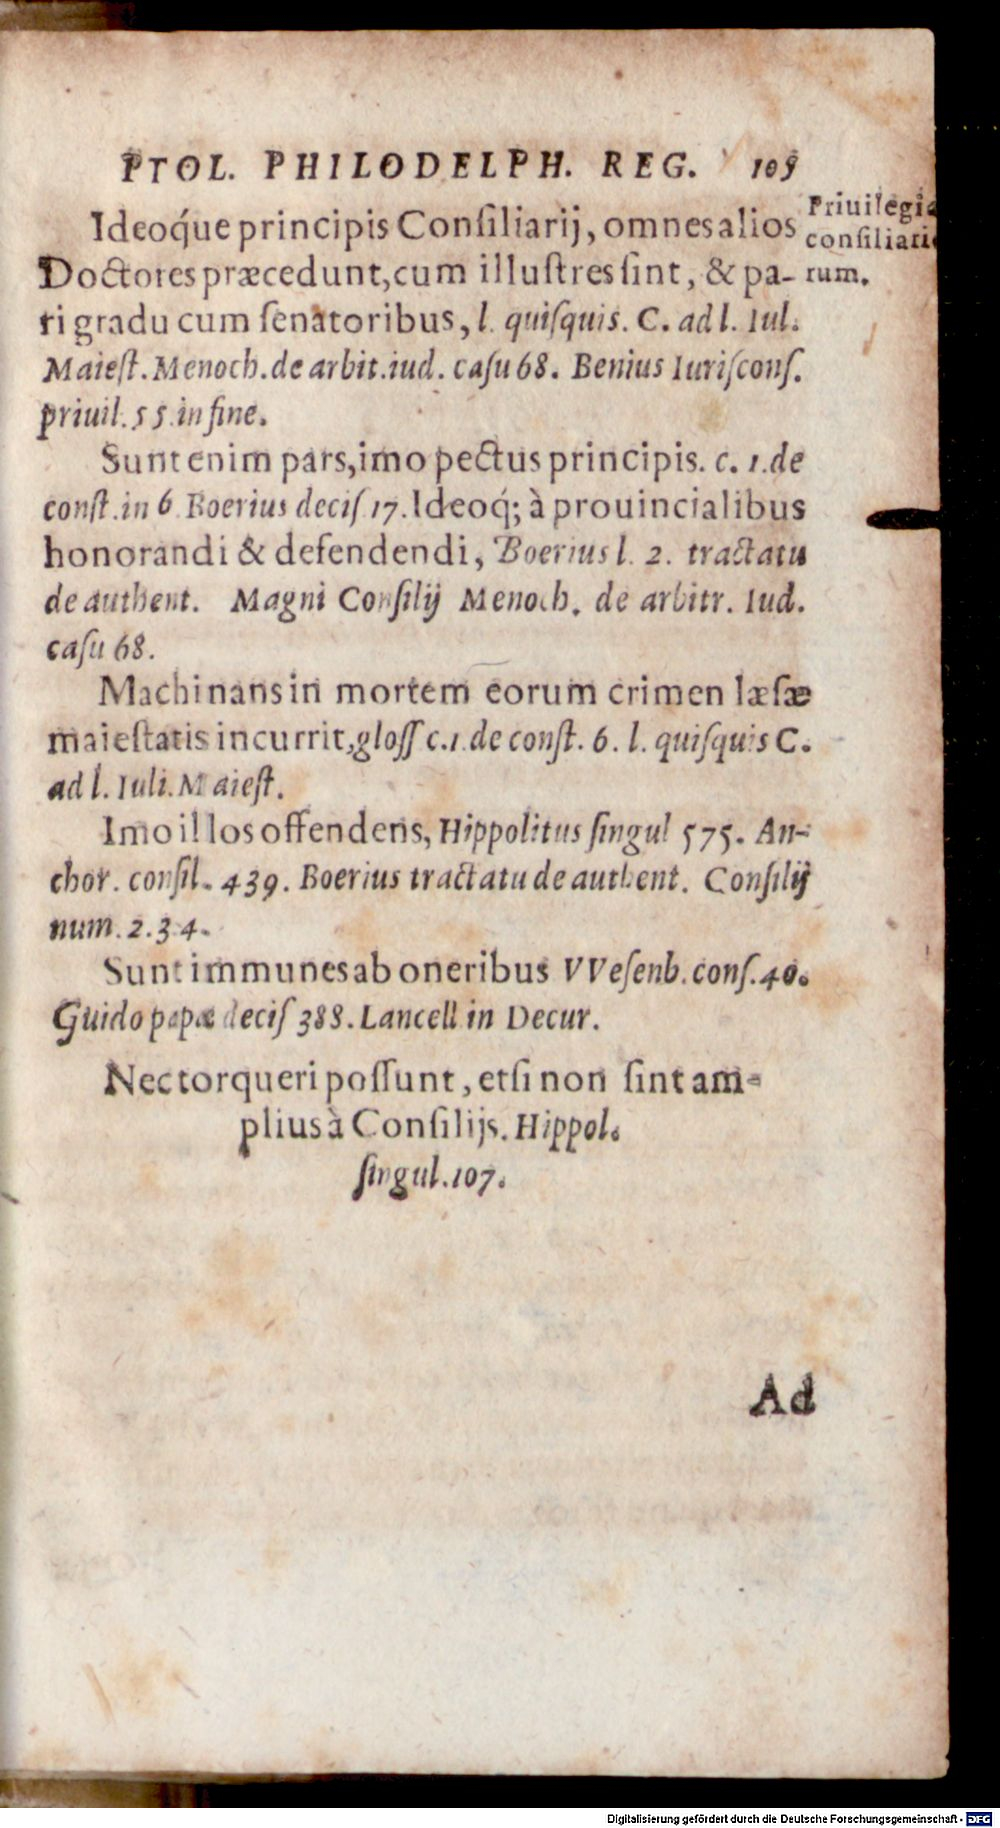 PTOL. PHILODELPH. REG. 105
Ideoq́ue principis Consiliarij, omnes alios
Priuilegia
consiliario
rum.
Doctores præcedunt, cum illustres sint, & pa-
ri gradu cum senatoribus, l. quisquis. C. ad l. Iul.
Maiest. Menoch. de arbit. iud. casu 68. Benius Iuriscons.
priuil. 55. in fine.
Sunt enim pars, imo pectus principis. c. 1. de
const. in 6 Boerius decis 17. Ideoq́; à prouincialibus
honorandi & defendendi, Boerius l. 2. tractatu
de authent. Magni Consilij Menoch. de arbitr. Iud.
casu 68.
Machinans in mortem eorum crimen læsæ
maiestatis incurrit, gloss c. 1. de const. 6. l. quisquis C.
ad l. Iuli. Maiest.
Imo illos offendens, Hippolitus singul 575. An-
chor. consil. 439. Boerius tractatu de authent. Consilij
num. 2. 3 4.
Sunt immunes ab oneribus VVesenb. cons. 40.
Guido papæ decis 388. Lancell in Decur.
Nec torqueri possunt, etsi non sint am-
plius à Consilijs. Hippol.
singul. 107.
Ad
Digitalisierung gefördert durch die Deutsche Forschungsgemeinschaft - DFG